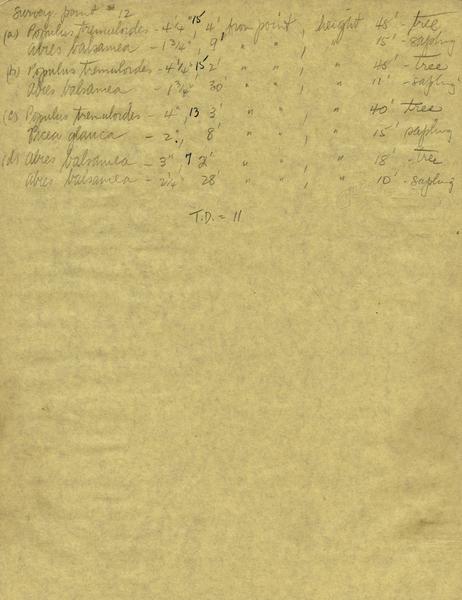 Survey point # 12
(a) Populus tremuloides - 4 1/4" 15, 4' from point, height 45' - tree
Abies balsamea - 1 3/4", 9' " " , " 15' - sapling
(b) Populus tremuloides - 4 1/4" 15 2' " " , " 45' - tree
Abies balsamea - 1 3/4", 30' " " , " 11' - sapling
(c) Populus tremuloides - 4", 13 3' " " , " 40' tree
Picea glauca - 2", 8' " " , " 15' sapling
(d) Abies balsamea - 3", 7 2' " " , " 18' - tree
Abies balsamea - 2 1/4" 28' " " , " 10' - sapling
T.D. = 11